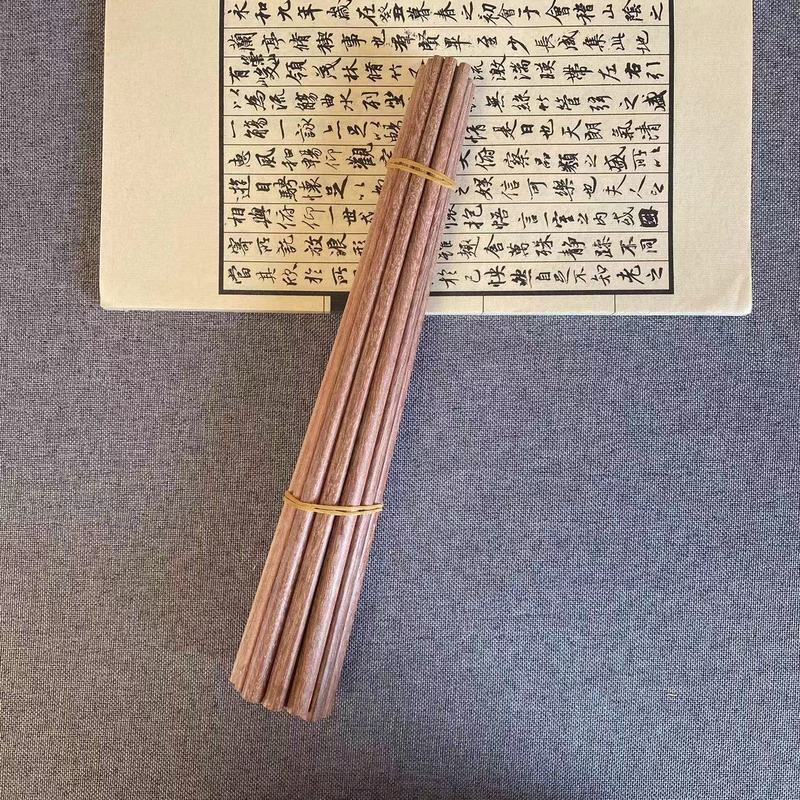 永和九年歲在癸丑暮春之初會于會稽山陰之
蘭亭脩稧事也羣賢畢至少長咸集此地
有崇山峻領茂林脩竹 流激湍暎帶左右引
以為流觴曲水列坐 無絲竹管弦之盛
一觴一詠亦足以暢 情是日也天朗氣清
惠風和暢仰觀 大俯察品類之盛所以
遊目騁懷足以 之娛信可樂也夫人之
相與俯仰一世或 抱悟言一室之內或因
寄所託放浪形 趣舍萬殊静躁不同
當其欣於所 於己怏然自足不知老之